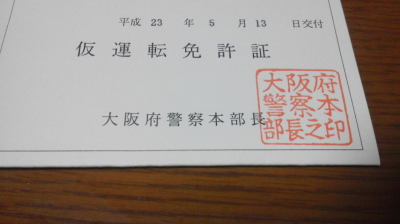 平成 23 年 5 月 13 日交付
仮運転免許証
大阪府警察本部長
大阪府
警察本
部長之印